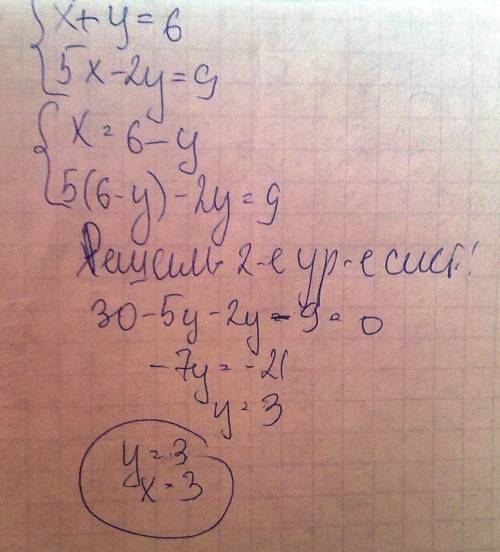 x+y=6
5x-2y=9
x=6-y
5(6-y)-2y=9
Решим 2-е ур-е сист:
30-5y-2y-9=0
-7y=-21
y=3
y=3
x=3